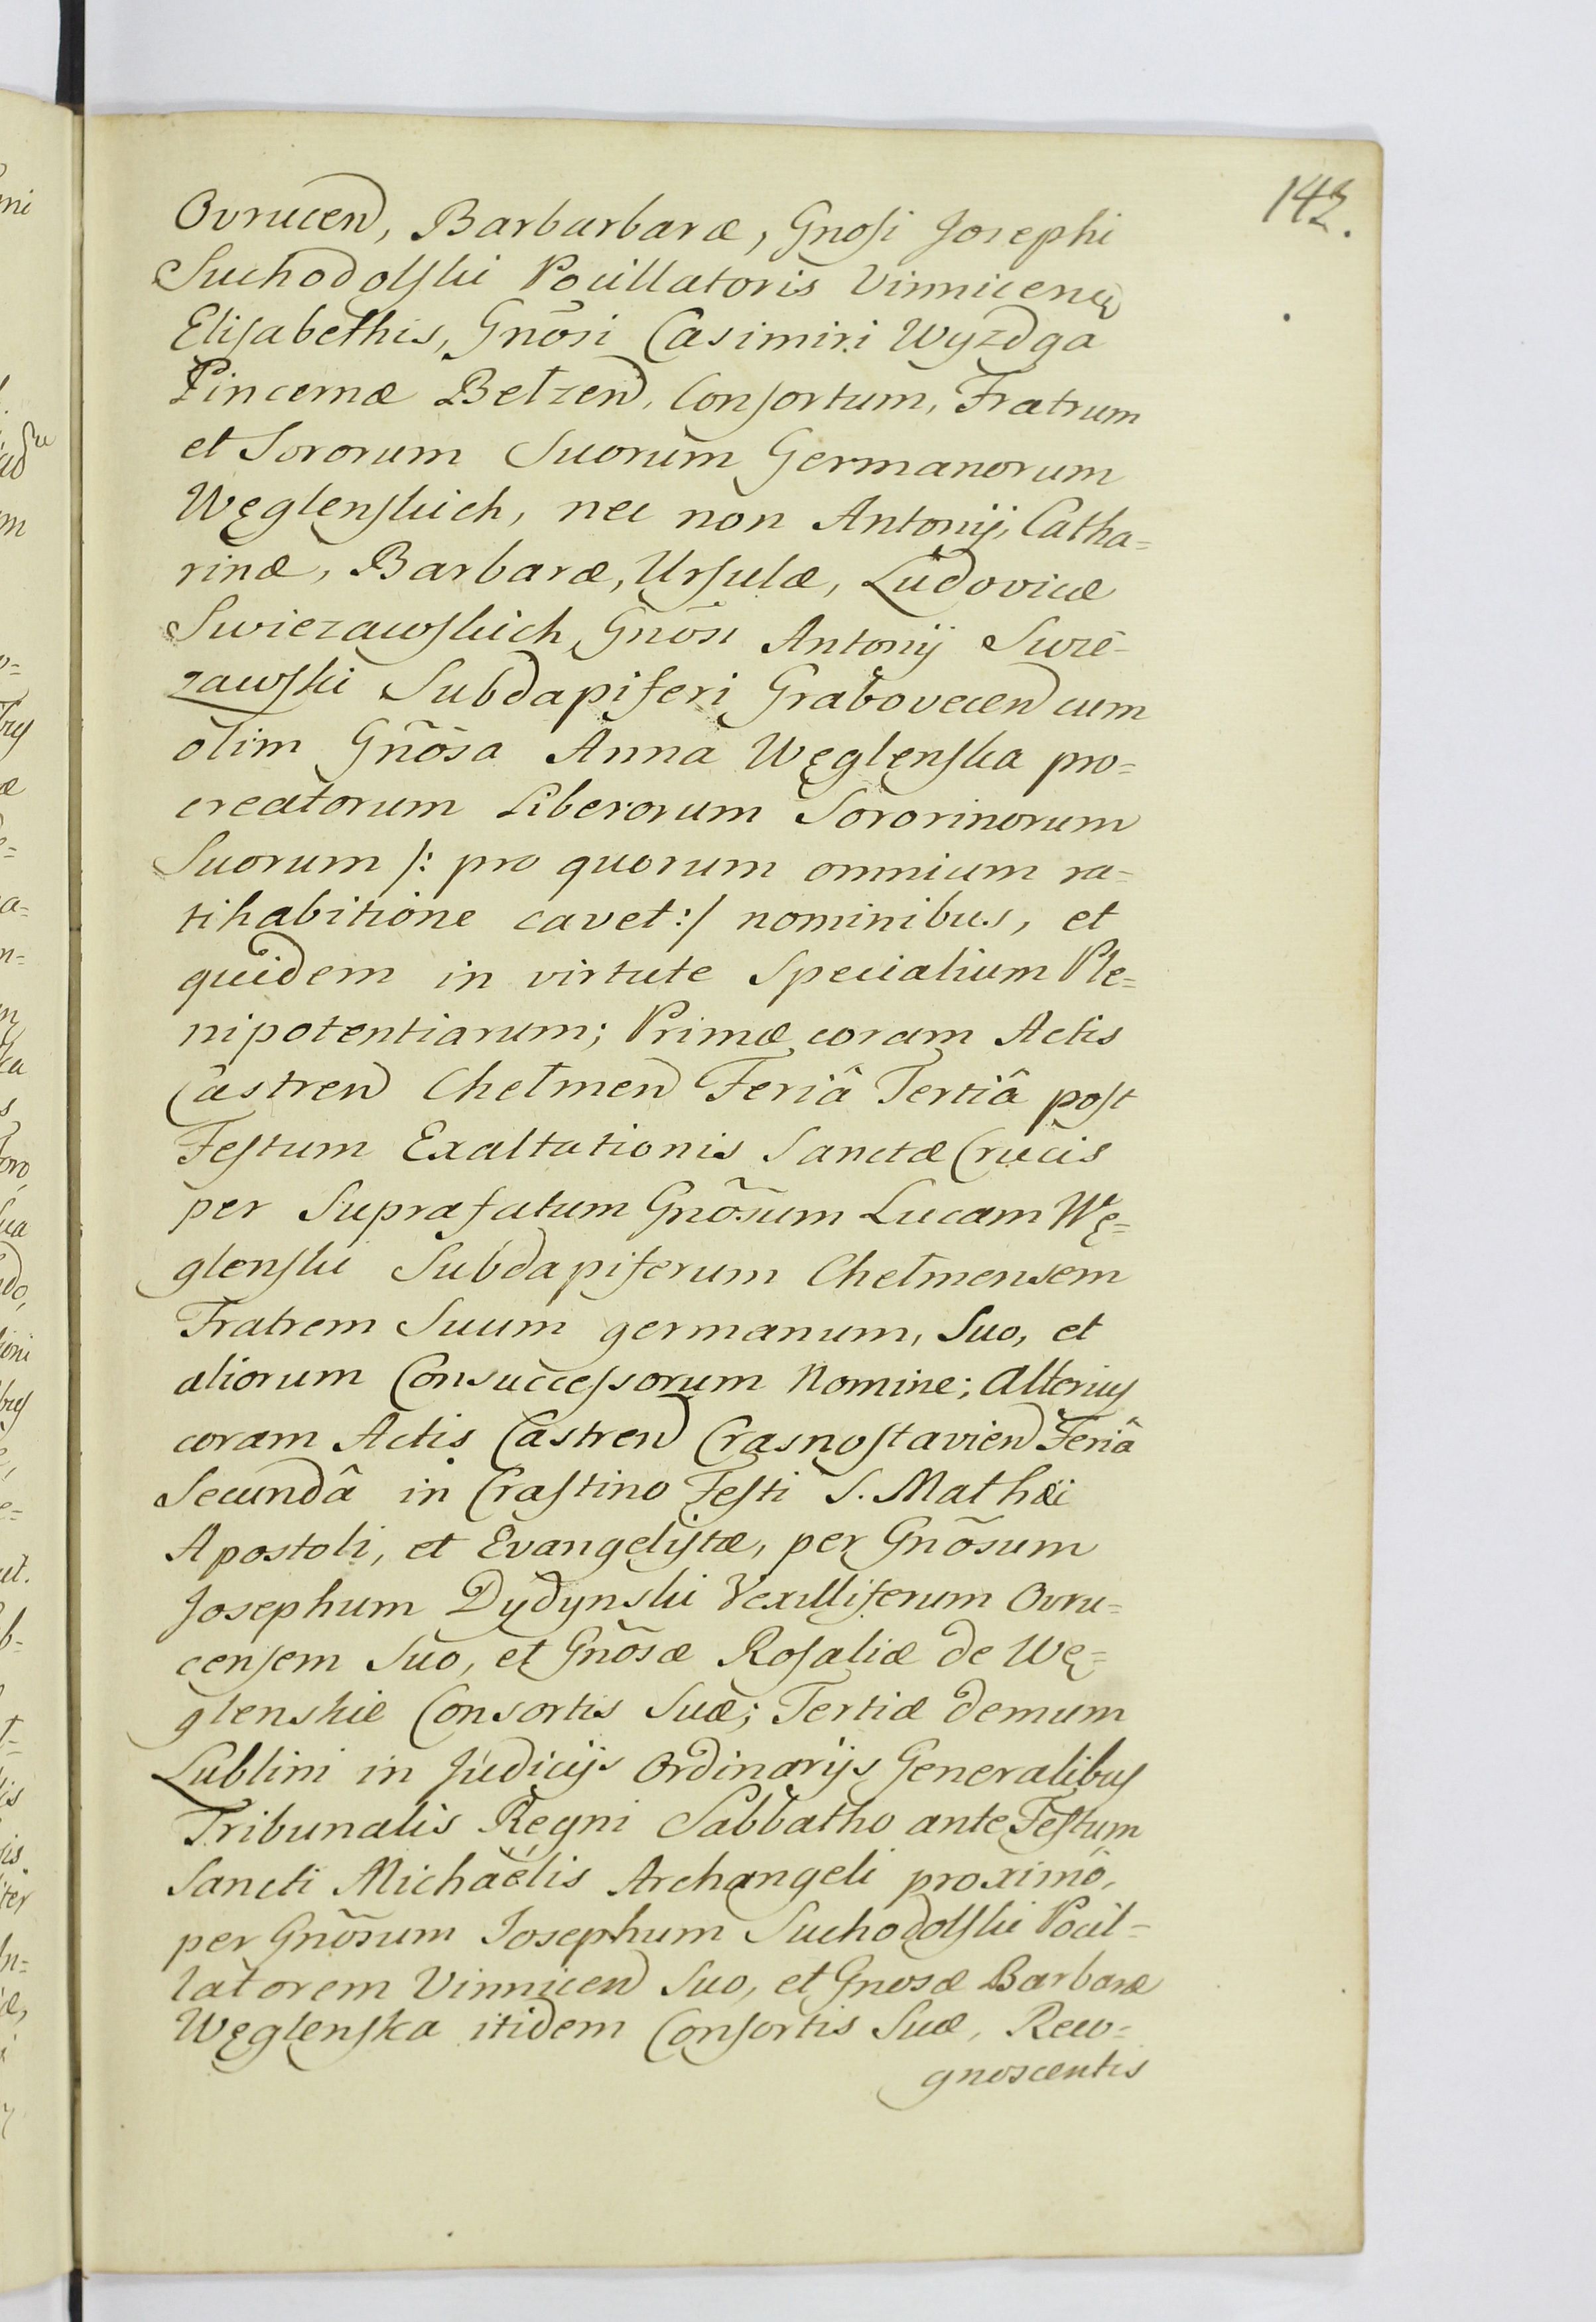 142.
Ovrucen, Barbarbaræ, Gnosi Josephi
Suchodolski Pocillatoris Vinnicen
Elisabethis, Gnõsi Casimiri Wyzdga
Pincernæ Bełzen, Consortum, Fratrum
et Sororum Suorum Germanorum
Węglenskich, nec non Antonij, Catha=
rinæ, Barbaræ, Ursulæ, Ludovicæ
Swiezawskich, Gnõsi Antonij Swie=
zawski Subdapiferi Grabovecen cum
olim Gnõsa Anna Węglęnska pro=
creatorum Liberorum Sororinorum
Suorum /: pro quorum omnium ra=
tihabitione cavet :/ nominibus, et
quidem in virtute Specialium Ple=
nipotentiarum; Primæ coram Actis
Castren Chełmen Feriâ Tertiâ post
Festum Exaltationis Sanctæ Crucis
per Suprafatum Gnõsum Lucam Wę=
glenski Subdapiferum Chełmensem
Fratrem Suum germanum, Suo, et
aliorum Consuccessorum Nomine; Alterius
coram Actis Castren Crasnostavien Feriâ
Secundâ in Crastino Festi S. Mathæi
Apostoli, et Evangelistæ, per Gnõsum
Josephum Dydynski Vexilliferum Ovru=
censem Suo, et Gnõsæ Rosaliæ de Wę=
glenskie Consortis Suæ; Tertiæ demum
Lublini in Judicijs Ordinarijs Generalibus
Tribunalis Regni Sabbatho ante Festum
Sancti Michaëlis Archangeli proximô,
per Gnõsum Josephum Suchodolski Pocil=
latorem Vinnicen Suo, et Gnosæ Barbaræ
Węglenska itidem Consortis Suæ, Reco=
gnoscentis